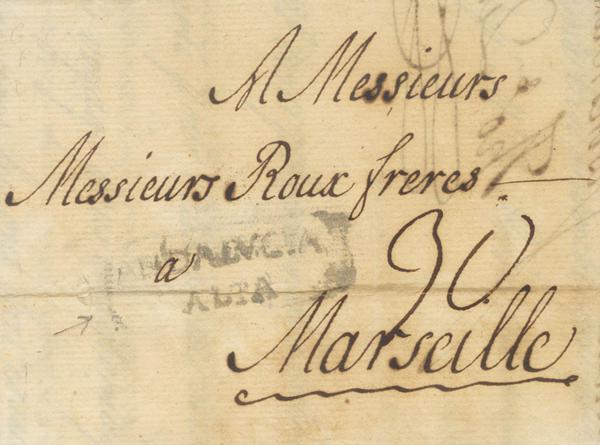 A Messieurs
Messieurs Roux freres
a
ANDALUCIA
ALTA
30
Marseille